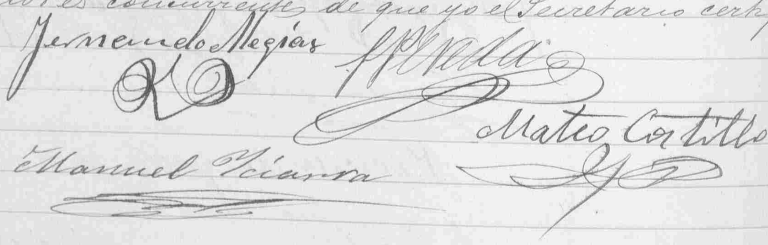 concurrentes de que yo el Secretario
Fernando Megías
Mateo Castillo
Manuel